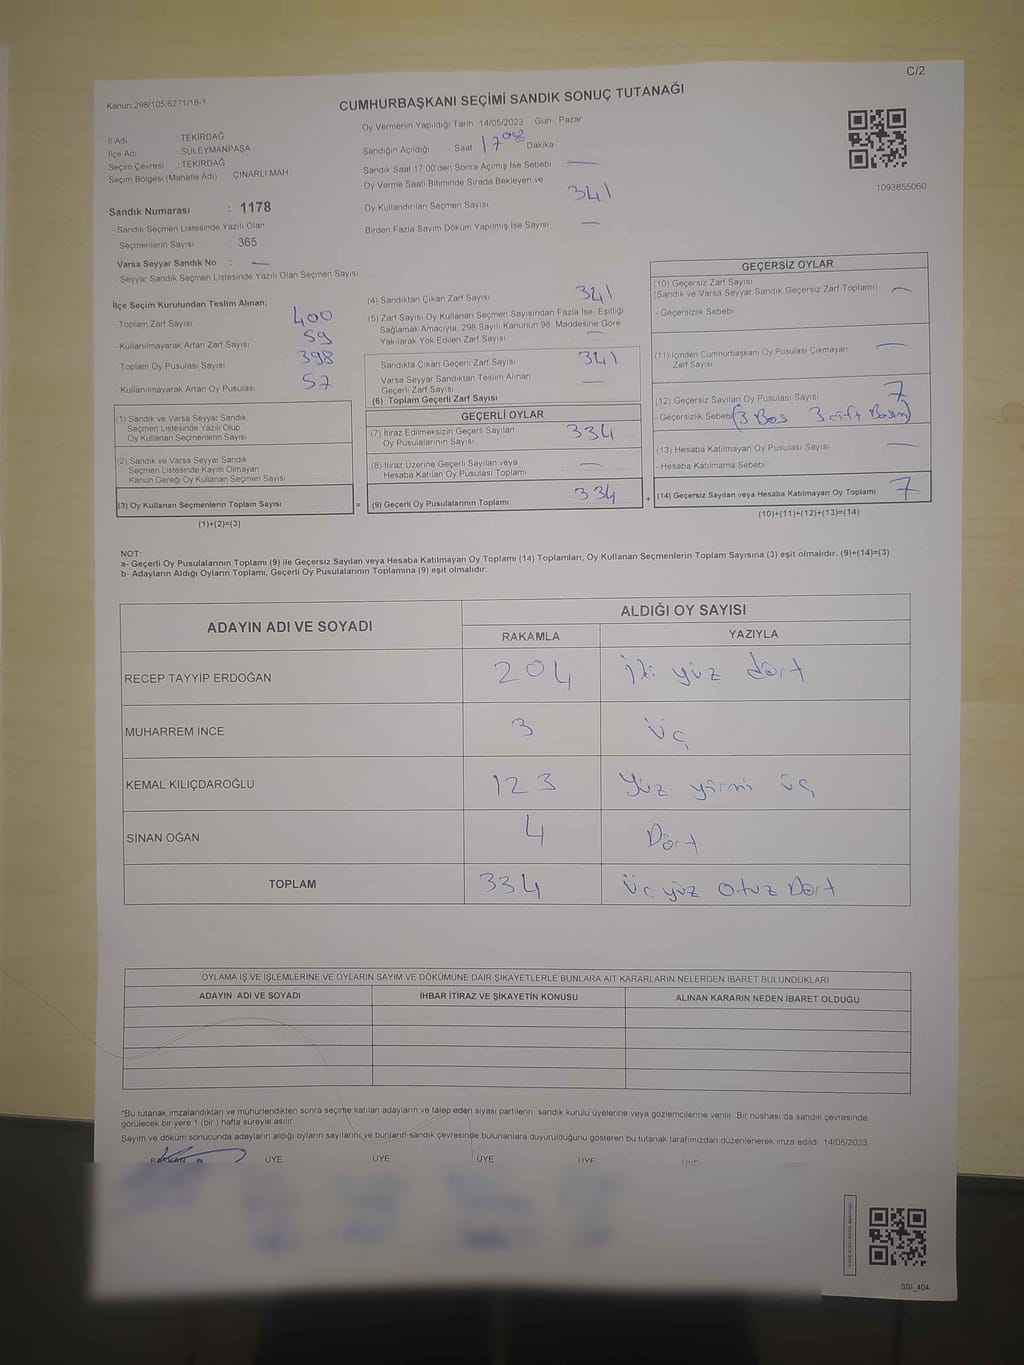 C/2
Kanun:298/105;6271/18-1
CUMHURBAŞKANI SEÇİMİ SANDIK SONUÇ TUTANAĞI
İl Adı : TEKİRDAĞ
İlçe Adı : SÜLEYMANPAŞA
Seçim Çevresi : TEKİRDAĞ
Seçim Bölgesi (Mahalle Adı) : ÇINARLI MAH.
Sandık Numarası : 1178
- Sandık Seçmen Listesinde Yazılı Olan
Seçmenlerin Sayısı : 365
Varsa Seyyar Sandık No : —
- Seyyar Sandık Seçmen Listesinde Yazılı Olan Seçmen Sayısı:
Oy Vermenin Yapıldığı Tarih : 14/05/2023 Gün : Pazar
Sandığın Açıldığı Saat 17 02 Dakika
Sandık Saat 17:00'den Sonra Açılmış İse Sebebi —
Oy Verme Saati Bitiminde Sırada Bekleyen ve
Oy Kullandırılan Seçmen Sayısı 341
Birden Fazla Sayım Döküm Yapılmış İse Sayısı —
1093855060
İlçe Seçim Kurulundan Teslim Alınan;
- Toplam Zarf Sayısı 400
- Kullanılmayarak Artan Zarf Sayısı 59
- Toplam Oy Pusulası Sayısı 398
- Kullanılmayarak Artan Oy Pusulası 57
(1) Sandık ve Varsa Seyyar Sandık
Seçmen Listesinde Yazılı Olup
Oy Kullanan Seçmenlerin Sayısı
(2) Sandık ve Varsa Seyyar Sandık
Seçmen Listesinde Kayıtlı Olmayan
Kanun Gereği Oy Kullanan Seçmen Sayısı
(3) Oy Kullanan Seçmenlerin Toplam Sayısı
=
(1)+(2)=(3)
(4) Sandıktan Çıkan Zarf Sayısı 341
(5) Zarf Sayısı Oy Kullanan Seçmen Sayısından Fazla İse, Eşitliği
Sağlamak Amacıyla, 298 Sayılı Kanunun 98. Maddesine Göre
Yakılarak Yok Edilen Zarf Sayısı —
Sandıkta Çıkan Geçerli Zarf Sayısı 341
Varsa Seyyar Sandıktan Teslim Alınan
Geçerli Zarf Sayısı —
(6) Toplam Geçerli Zarf Sayısı
GEÇERLİ OYLAR
(7) İtiraz Edilmeksizin Geçerli Sayılan
Oy Pusulalarının Sayısı 334
(8) İtiraz Üzerine Geçerli Sayılan veya
Hesaba Katılan Oy Pusulası Toplamı —
(9) Geçerli Oy Pusulalarının Toplamı 334
+
GEÇERSİZ OYLAR
(10) Geçersiz Zarf Sayısı
(Sandık ve Varsa Seyyar Sandık Geçersiz Zarf Toplamı) —
- Geçersizlik Sebebi
(11) İçinden Cumhurbaşkanı Oy Pusulası Çıkmayan
Zarf Sayısı —
(12) Geçersiz Sayılan Oy Pusulası Sayısı 7
- Geçersizlik Sebebi (3 Boş 3 çift Basım)
(13) Hesaba Katılmayan Oy Pusulası Sayısı —
- Hesaba Katılmama Sebebi
(14) Geçersiz Sayılan veya Hesaba Katılmayan Oy Toplamı 7
(10)+(11)+(12)+(13)=(14)
NOT:
a- Geçerli Oy Pusulalarının Toplamı (9) ile Geçersiz Sayılan veya Hesaba Katılmayan Oy Toplamı (14) Toplamları, Oy Kullanan Seçmenlerin Toplam Sayısına (3) eşit olmalıdır. (9)+(14)=(3)
b- Adayların Aldığı Oyların Toplamı, Geçerli Oy Pusulalarının Toplamına (9) eşit olmalıdır.
ADAYIN ADI VE SOYADI
ALDIĞI OY SAYISI
RAKAMLA YAZIYLA
RECEP TAYYİP ERDOĞAN 204 İki yüz dört
MUHARREM İNCE 3 üç
KEMAL KILIÇDAROĞLU 123 Yüz yirmi üç
SİNAN OĞAN 4 Dört
TOPLAM 334 üç yüz otuz Dört
OYLAMA İŞ VE İŞLEMLERİNE VE OYLARIN SAYIM VE DÖKÜMÜNE DAİR ŞİKAYETLERLE BUNLARA AİT KARARLARIN NELERDEN İBARET BULUNDUKLARI
ADAYIN ADI VE SOYADI İHBAR İTİRAZ VE ŞİKAYETİN KONUSU ALINAN KARARIN NEDEN İBARET OLDUĞU
*Bu tutanak imzalandıktan ve mühürlendikten sonra seçime katılan adayların ve talep eden siyasi partilerin sandık kurulu üyelerine veya gözlemcilerine verilir. Bir nüshası da sandık çevresinde
görülecek bir yere 1 (bir ) hafta süreyle asılır.
Sayım ve döküm sonucunda adayların aldığı oyların sayılarını ve bunların sandık çevresinde bulunanlara duyurulduğunu gösteren bu tutanak tarafımızdan düzenlenerek imza edildi. 14/05/2023
BAŞKAN ÜYE ÜYE ÜYE ÜYE ÜYE
SSI_404